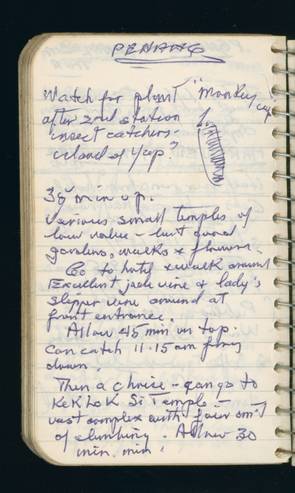 PENANG
Watch for plant "Monkey cup"
after 2nd station
insect catchers -
island of Yap?
30 min up.
Various small temples of
low value - but good
gardens, walks & flowers.
Go to hotel & walk around
Excellent jade vine & lady's
slipper vine around at
front entrance.
Allow 45 min on top.
Can catch 11.15 am ferry
down.
Then a choice - can go to
Kek Lok Si Temple -
vast complex with fair am't
of climbing. Allow 30
min. min.